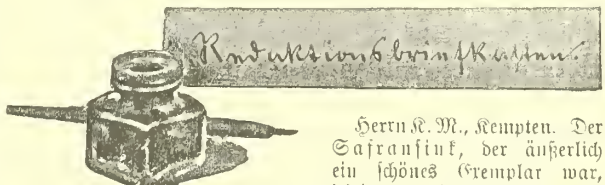 Redaktionsbriefkasten.
Herrn K. M., Kempten. Der
Safranfink, der äußerlich
ein schönes Exemplar war,